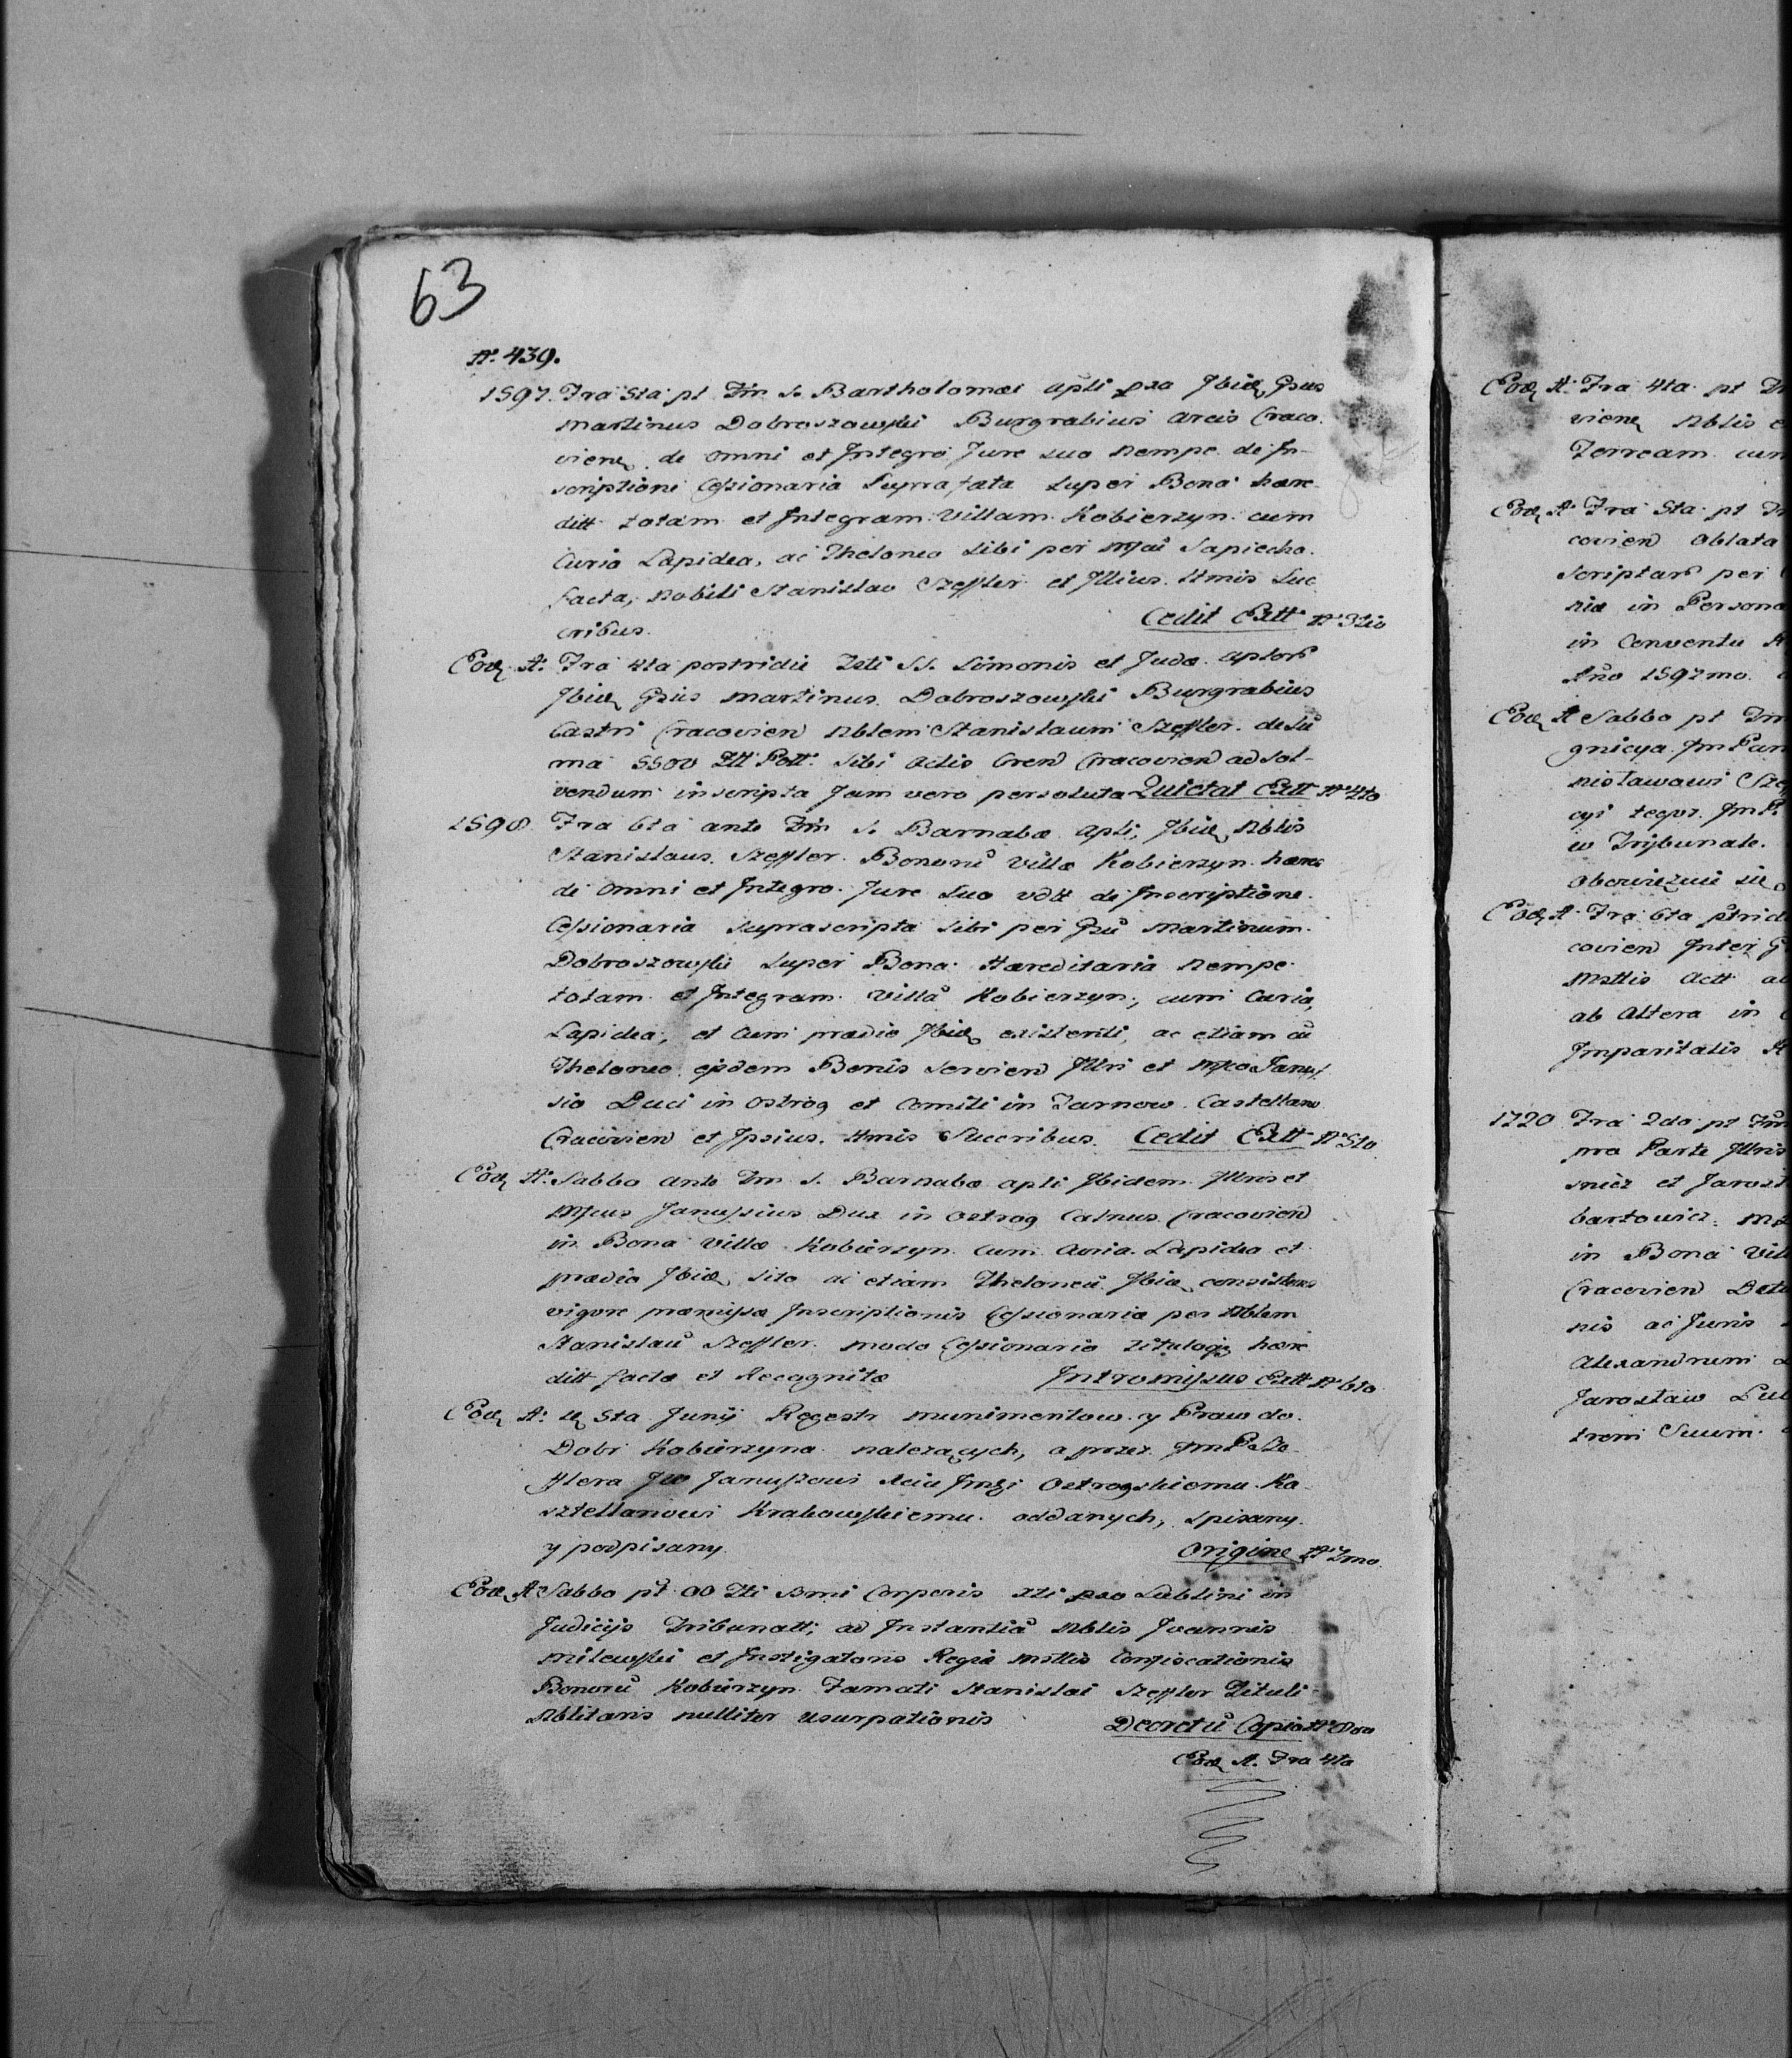 63
N° 439.
1597. Fra 5ta pt Fm S. Bartholomæi apli pro Ibid Gsus
Martinus Dobroszowski Burgrabius Arcis Craco.
vien de omni et Integro Jure suo nempe de In-
scriptione Cessionaria Supra fata super Bona hære-
ditt totam et Integram Villam Kobierzyn cum
Curia Lapidea, ac Theloneo sibi per Mfcu Sapiecha
facta, Nobili Stanislao Szeffler et Illius Hmis Suc
oribus. Cedit Extt N° 3tio
Eod A° Fra 4ta postridie Festi SS. Simonis et Judæ Aptor
Ibid Gsus Martinus Dobroszowski Burgrabius
Castri Cracovien Nblem Stanislaum Szeffler de Su
ma 5500 Ztt Poll. sibi Actis Cren Cracovien ad Sol-
vendum inscripta Jam vero persoluta Quietat Extt N° 4to
1598 Fra 6ta ante Fm S. Barnabæ apli, Ibid Nblis
Stanislaus Szeffler Bonoru Villæ Kobierzyn hæres
de omni et Integro Jure Suo vdtt de Inscriptione
Cessionaria suprascripta sibi per Gsu Martinum
Dobroszowski super Bona Hæreditaria nempe
totam et Integram Villa Kobierzyn, cum Curia
Lapidea, et cum prædio Ibid existenti, ac etiam cu
Theloneo ejsdem Bonis Servien Illri et Mfco Janus-
sio Duci in Ostrog et Comiti in Tarnow Castellano
Cracovien et Ipsius Hmis Succribus. Cedit Extt N° 5to
Eod A° Sabbo ante Fm S. Barnabæ apli Ibidem Illris et
Mfcus Janussius Dux in Ostrog Catnus Cracovien
in Bona Villæ Kobierzyn cum Curia Lapidea et
prædio Ibid sito ac etiam Theloneu Ibid consistens
vigore præmissæ Inscriptionis Cessionariæ per Nblem
Stanislau Szeffler modo Cessionario Tituloq hære
ditt factæ et Recognitæ Intromissus Extt N° 6to
Eod A° 5ta Junij Regestr munimentow y Praw do
Dobr Kobierzyna nalezących, a przez JmP Sze-
fflera Jw Januszowi Xciu Jmci Ostrogskiemu Ka-
sztellanowi Krakowskiemu oddanych, spisany
y podpisany Origine N° 7mo
Eod A° Sabbo pt OO Fti Smi Corporis Xti pro Lublini in
Judicijs Tribunatt, ad Instantia Nblis Joannis
Milewski et Instigatoris Regiæ Mttis Confiscationis
Bonoru Kobierzyn Famati Stanislai Szeffler Tituli
Nblitaris nulliter usurpationis Decretu Copia N° 8vo
Eod A. Fra 4ta
Eod A° Fra 4ta pt
vien Nblis
Terream cum
Eod A° Fra 5ta pt
covien Oblata
Scriptar per
niæ in Persona
in Conventu
Año 1597mo.
Eod A Sabbo pt Fm
gnicya Jm Pan
nisławowi Sze
cyi tegoż JmP.
w Trybunale.
obowiązuie się
Eod A° Fra 6ta ptrid
covien Inter G
Mttis Actt
ab Altera in
Imparitatis
1720 Fra 2da pt Fm
pro Parte Illris
snicz et Jarosł
bartowicz
in Bona Vil
Cracovien
nis ac Juris
Alexandrum
Jaroslaw Lub
trem Suum